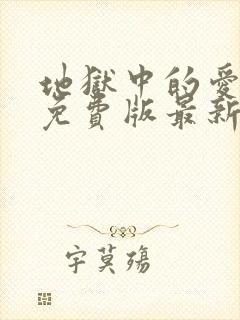 地獄中的愛
免費版最新
字莫殤